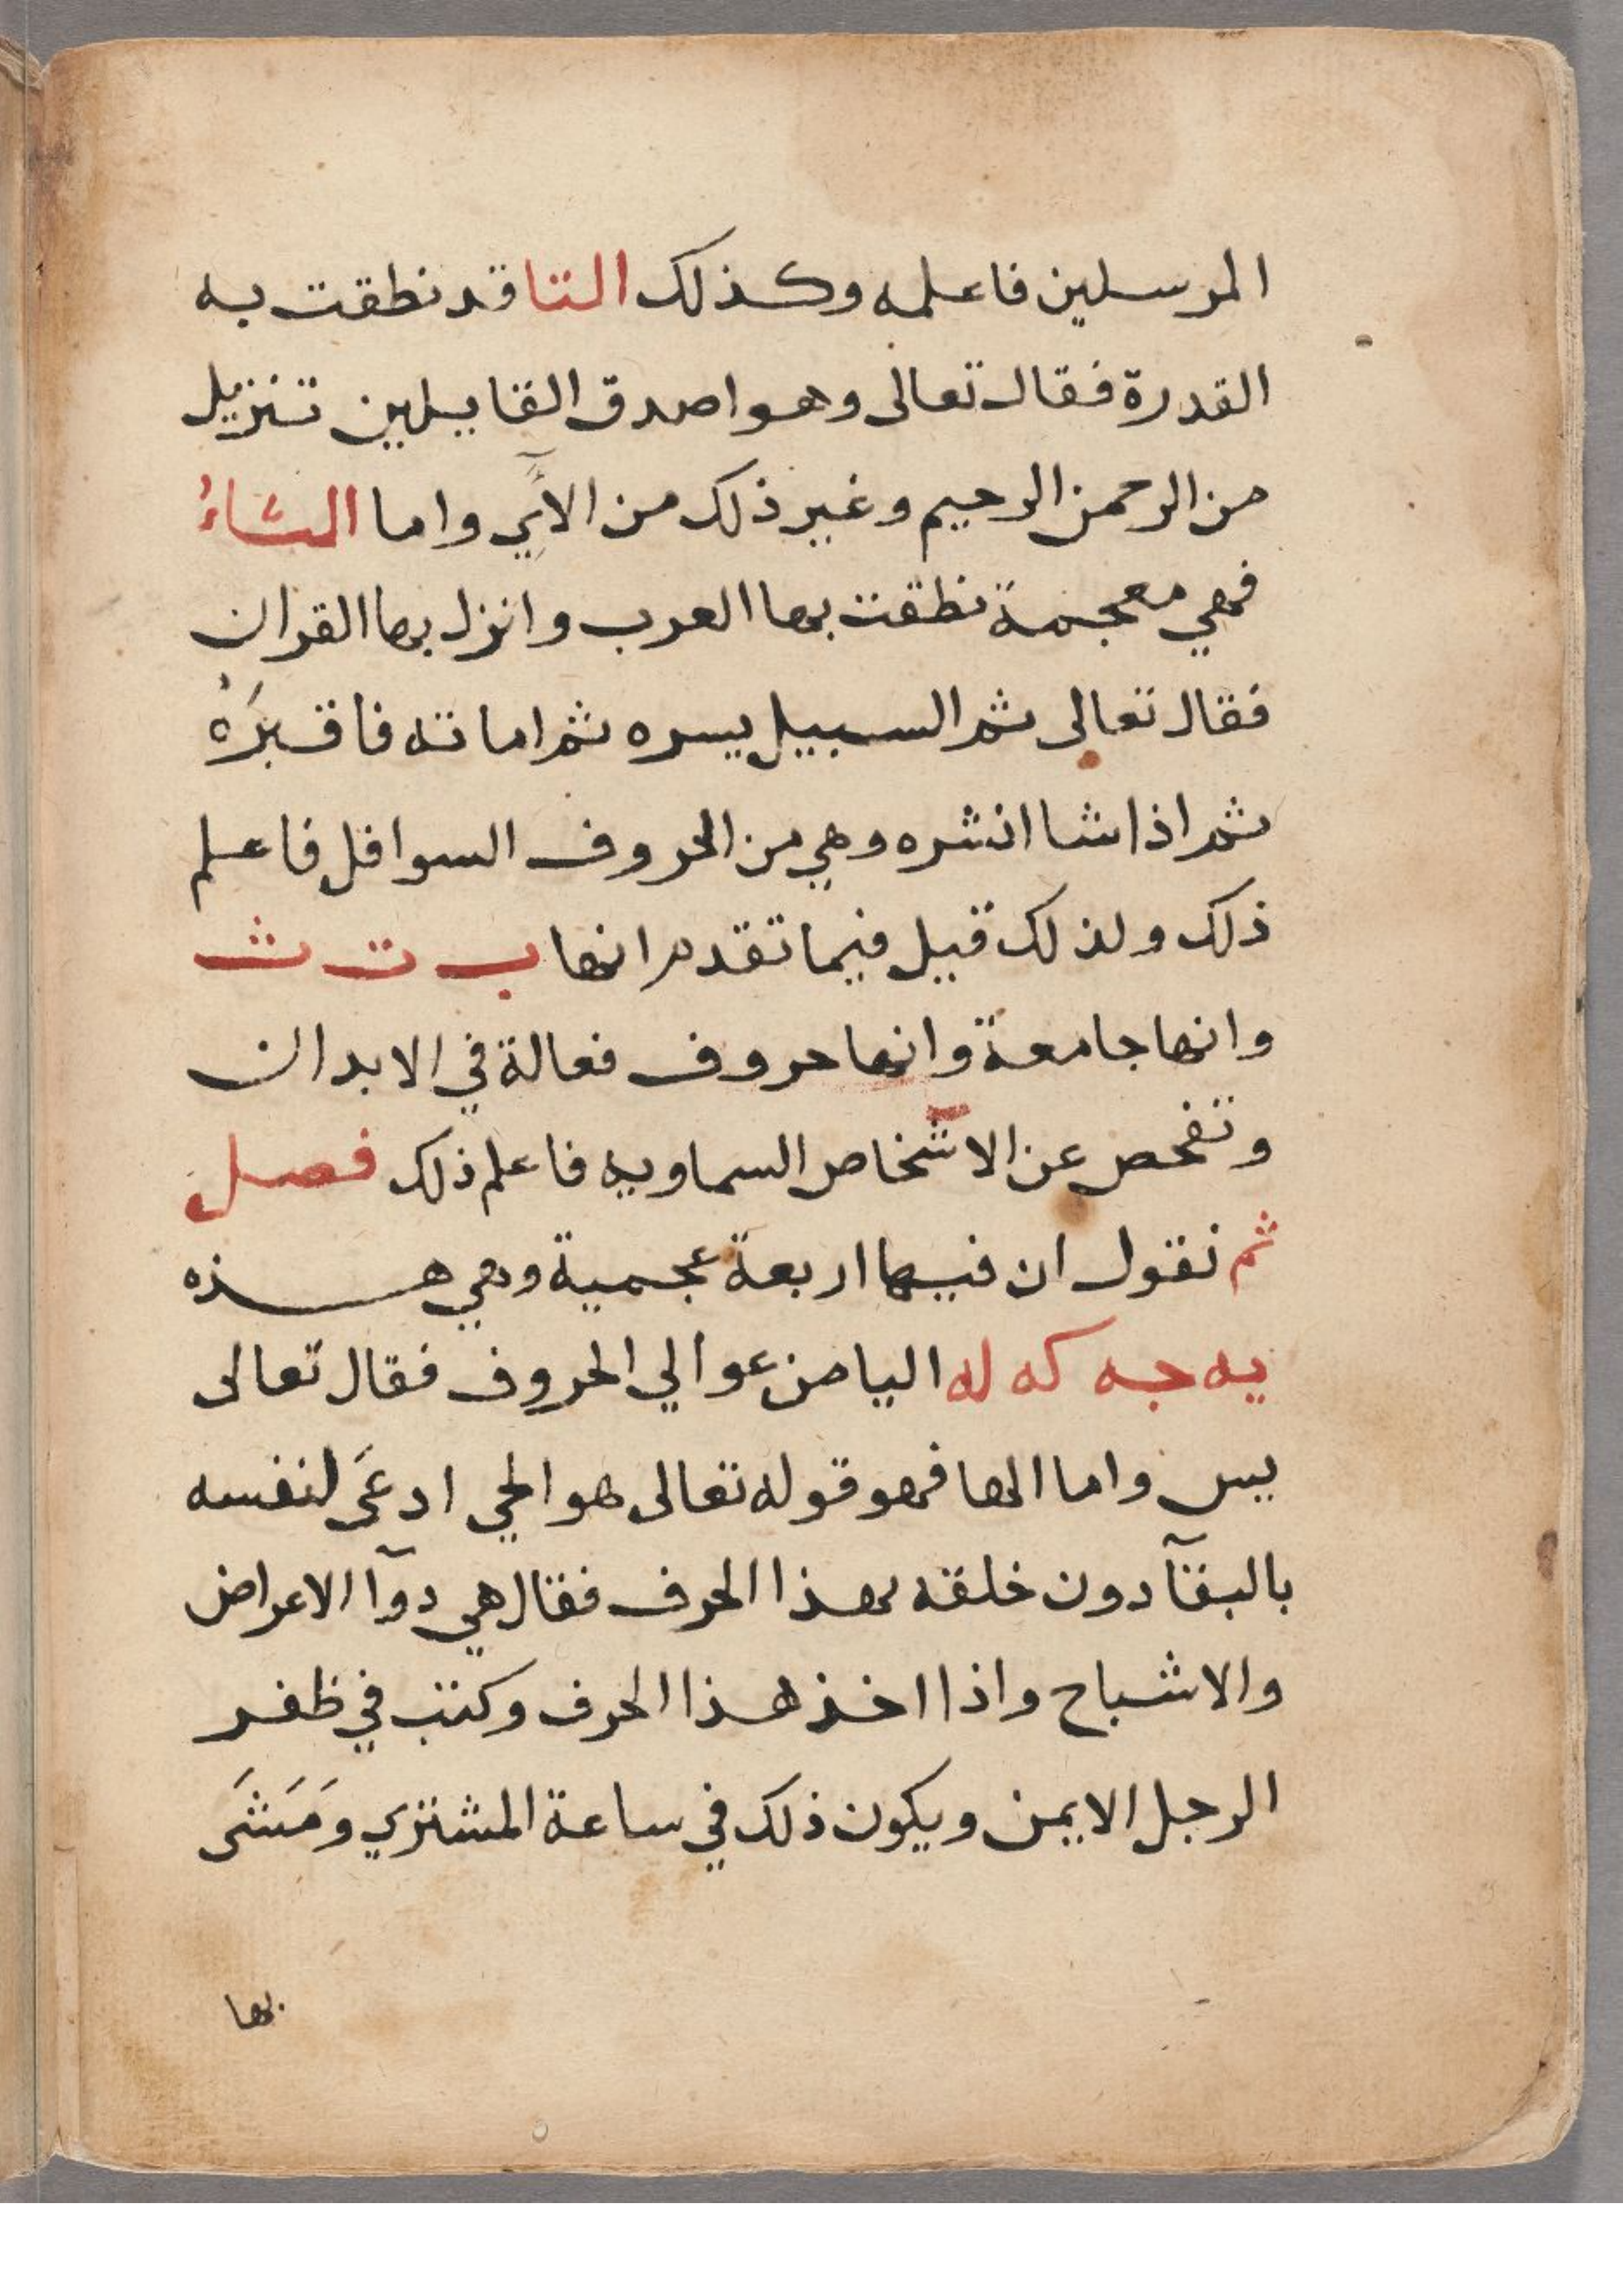 المرسلين فاعلمه وكذلك التا قد نطقت به
القدرة فقال تعالى وهو اصدق القايلين تنزيل
من الرحمن الرحيم وغير ذلك من الآي واما الثاءُ
فهي معجمة نطقت بها العرب وانزل بها القران
فقال تعالى ثم السبيل يسره ثم اماته فاقبَرَهُ
ثم اذا شا انشره وهي من الحروف السوافل فاعلم
ذلك ولذلك قيل فيما تقدم انها ب ت ث
وانها جامعة وانها حروف فعالة في الابدان
وتفحص عن الاشخاص السماويه فاعلم ذلك فصل
ثم نقول ان فيها اربعة عجمية وهي هذه
يه جه كه له اليا من عوالي الحروف فقال تعالى
يس واما الها فهو قوله تعالى هو الحي ادعَى لنفسه
بالبقآ دون خلقه بهذا الحرف فقال هي دوآ الاعراض
والاشباح واذا اخذ هذا الحرف وكتب في ظفر
الرجل الايمن ويكون ذلك في ساعة المشتري ومَشَى
بها